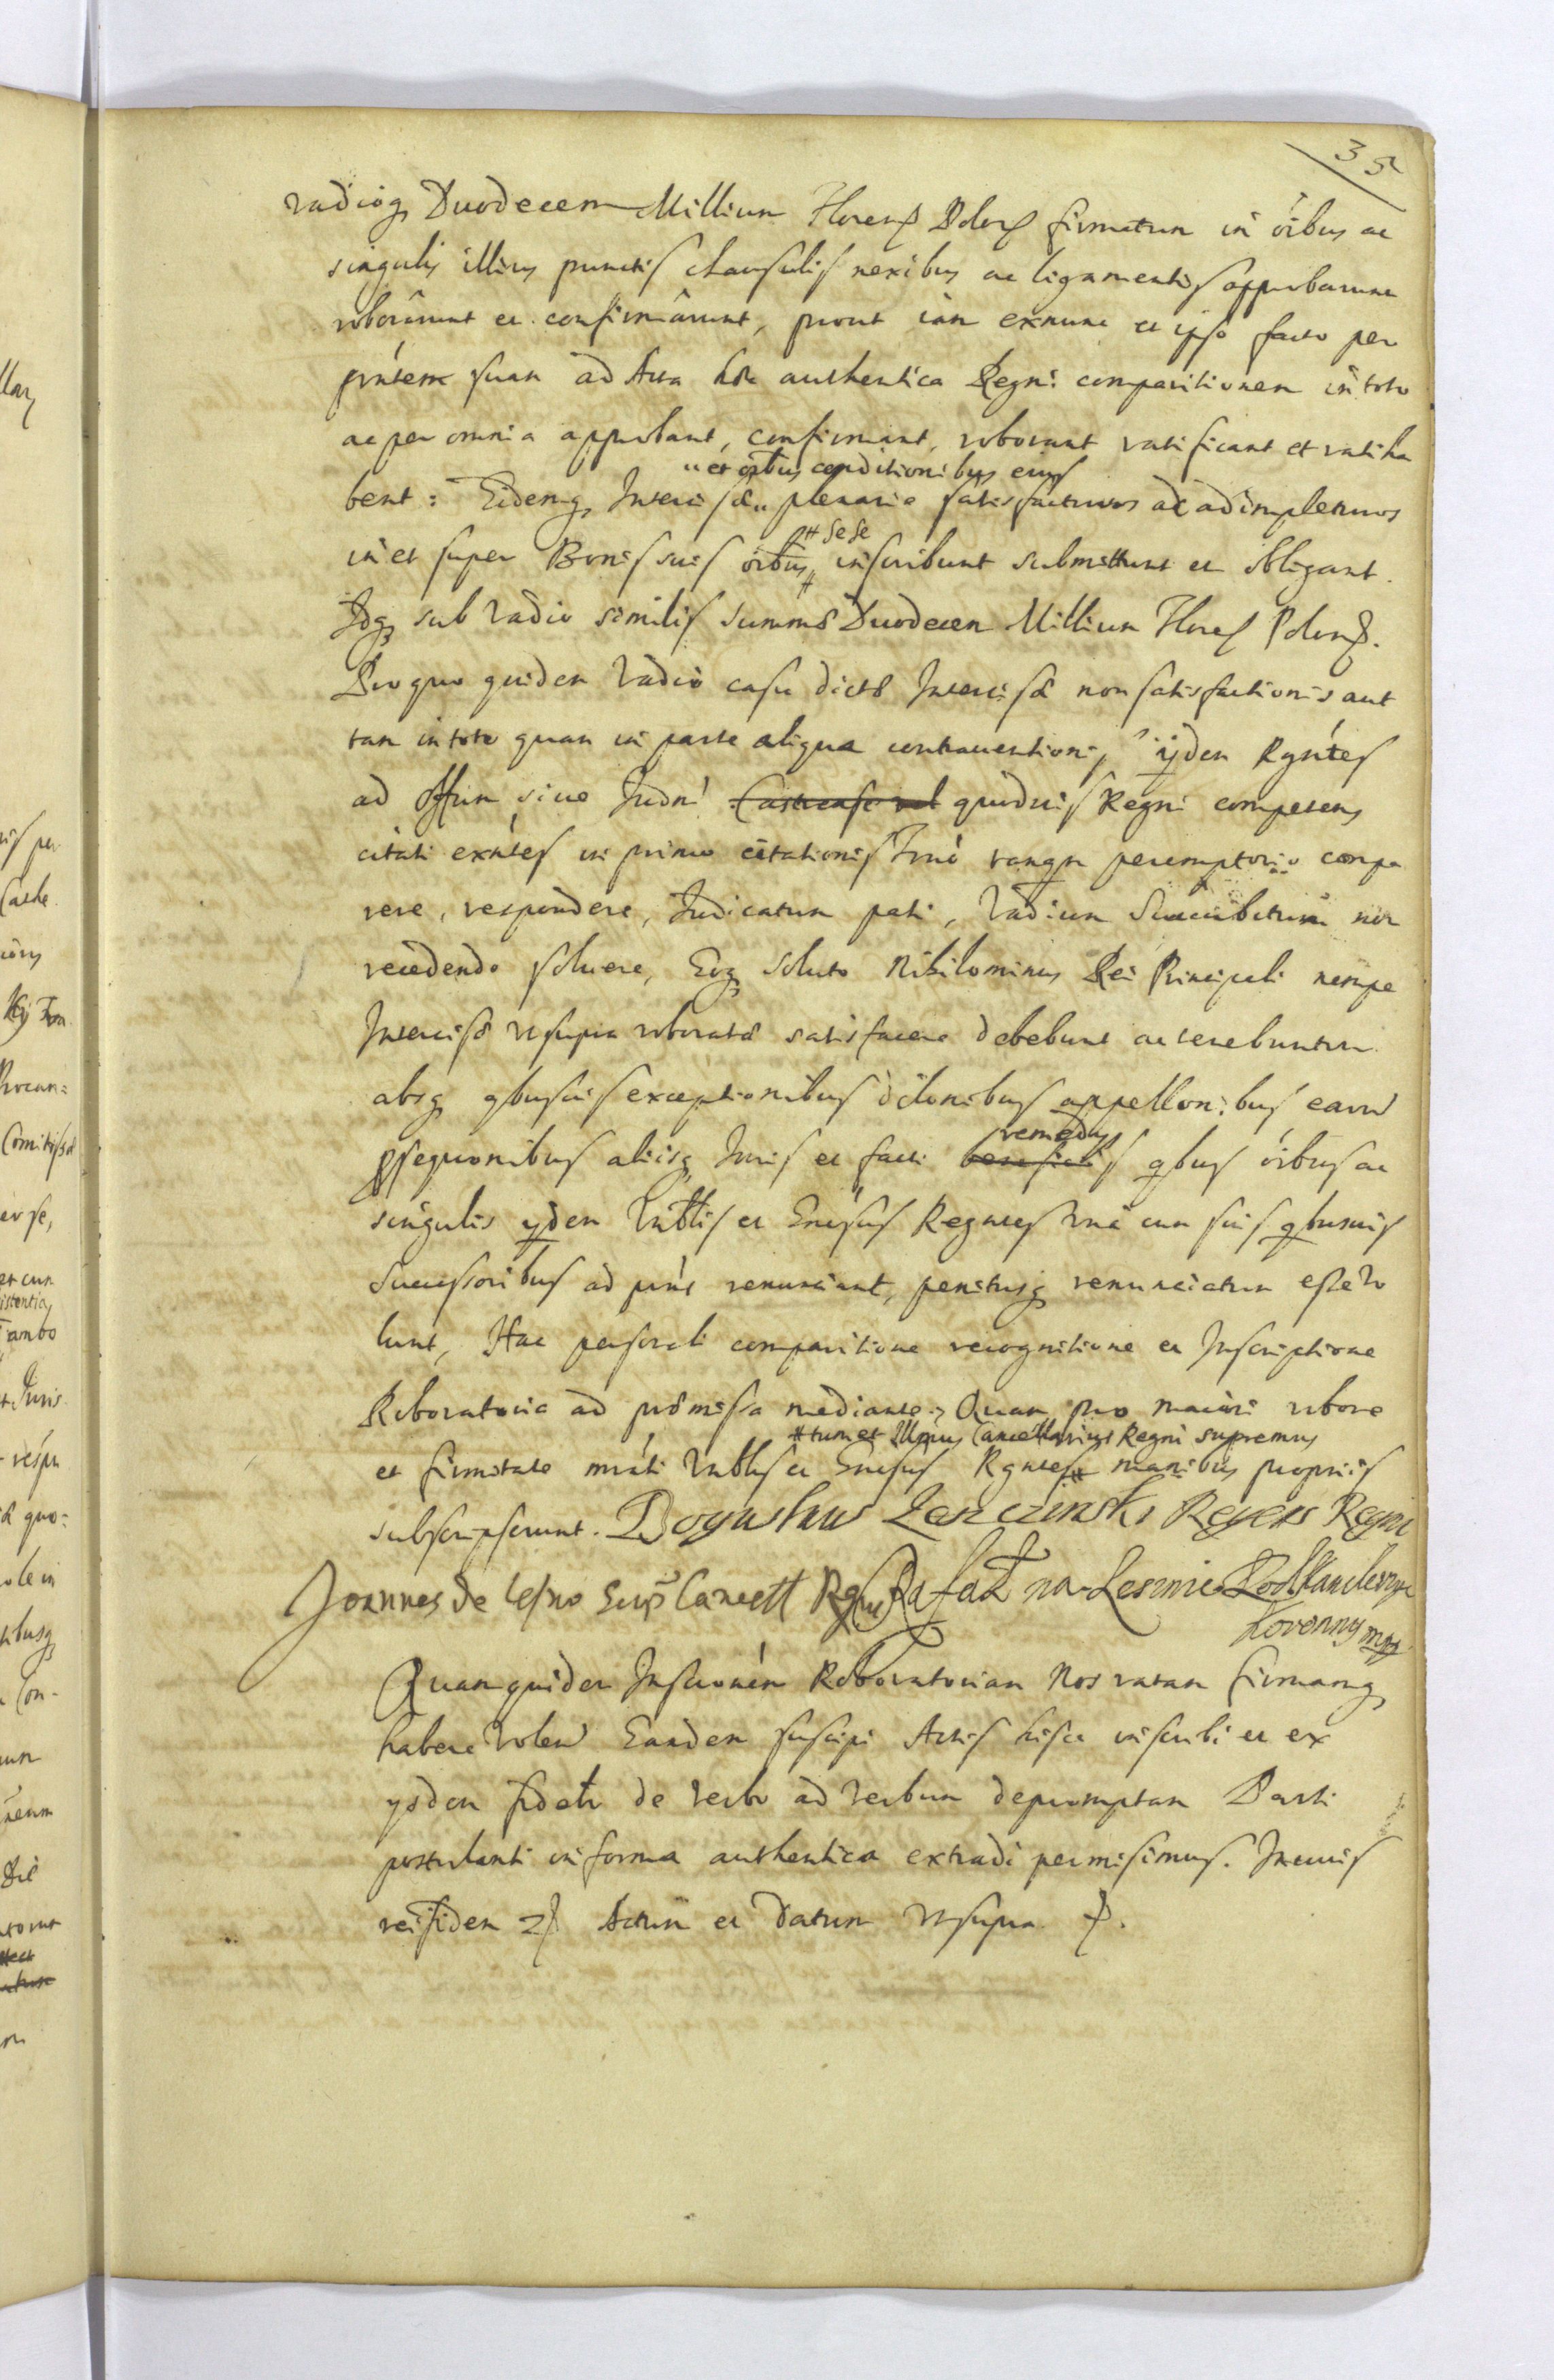 35
vadioq, Duodecem Millium Floren Polon firmatum in oibus ac
singulis illius punctis clausulis nexibus ac ligamentis approbarunt
roborârunt et confirmârunt, prout iàm exnunc et ipso facto per
pntem suam ad Acta haec authentica Regni comparitionem in toto
ac per omnia approbant, confirmant, roborant ratificant et ratiha
"et oibus conditionibus eius
bent: Eidemq, Intercisae" plenarie satisfacturos ac adimpleturos
# sese
in et super Bonis suis oibus # inscribunt submittunt et obligant.
Idq, sub vadio similis summae Duodecem Millium Floren Polon.
Pro quo quidem vadio casu dictae Intercisae non satisfactionis aut
tam in toto quam in parte aliqua contraventionis, ijdem Rgntes
ad Offm siue Judm Castrense vel quoduis Regni competens
citati exntes in primo citationis Trno tanqm peremptorio compa
rere, respondere, Judicatum pati, Vadium Succubitum non
recedendo soluere, Eoq, soluto Nihilominus Rei Principali nempe
Intercisae utsupra roboratae satisfacere debebunt ac tenebuntur
absq, qbusuis exceptionibus dilonibus appellonibus earum
psequonibus aliisq, Juris et facti
remedijs
beneficijs qbus oibus ac
singulis ijdem et Rgntes vnà cum suis qbusuis
Successoribus ad pnns renunciant, penitusq, renunciatum esse vo
lunt, Hac personali comparitione recognitione et Inscriptione
Roboratoria ad praemissa mediante. Quam pro maiori robore
# tum et Illmus Cancellarius Regni supremus
et firmitate et Rgntes # manibus proprijs
subscripserunt. Boguslaus Leszczinski Regens Regni
Joannes de Lesno Sup Cancell Rgni Rafał na Lesznie Podkanclerzyc
Koronny mpp
Quamquidem Inscronem Roboratoriam Nos ratam firmamq,
habere volen Eandem suscipi Actis hisce inscribi et ex
ijsdem fidetr de verbo ad verbum depromptam Parti
postulanti in forma authentica extradi permisimus. Incuius
rei fidem Actum et Datum Utsupra